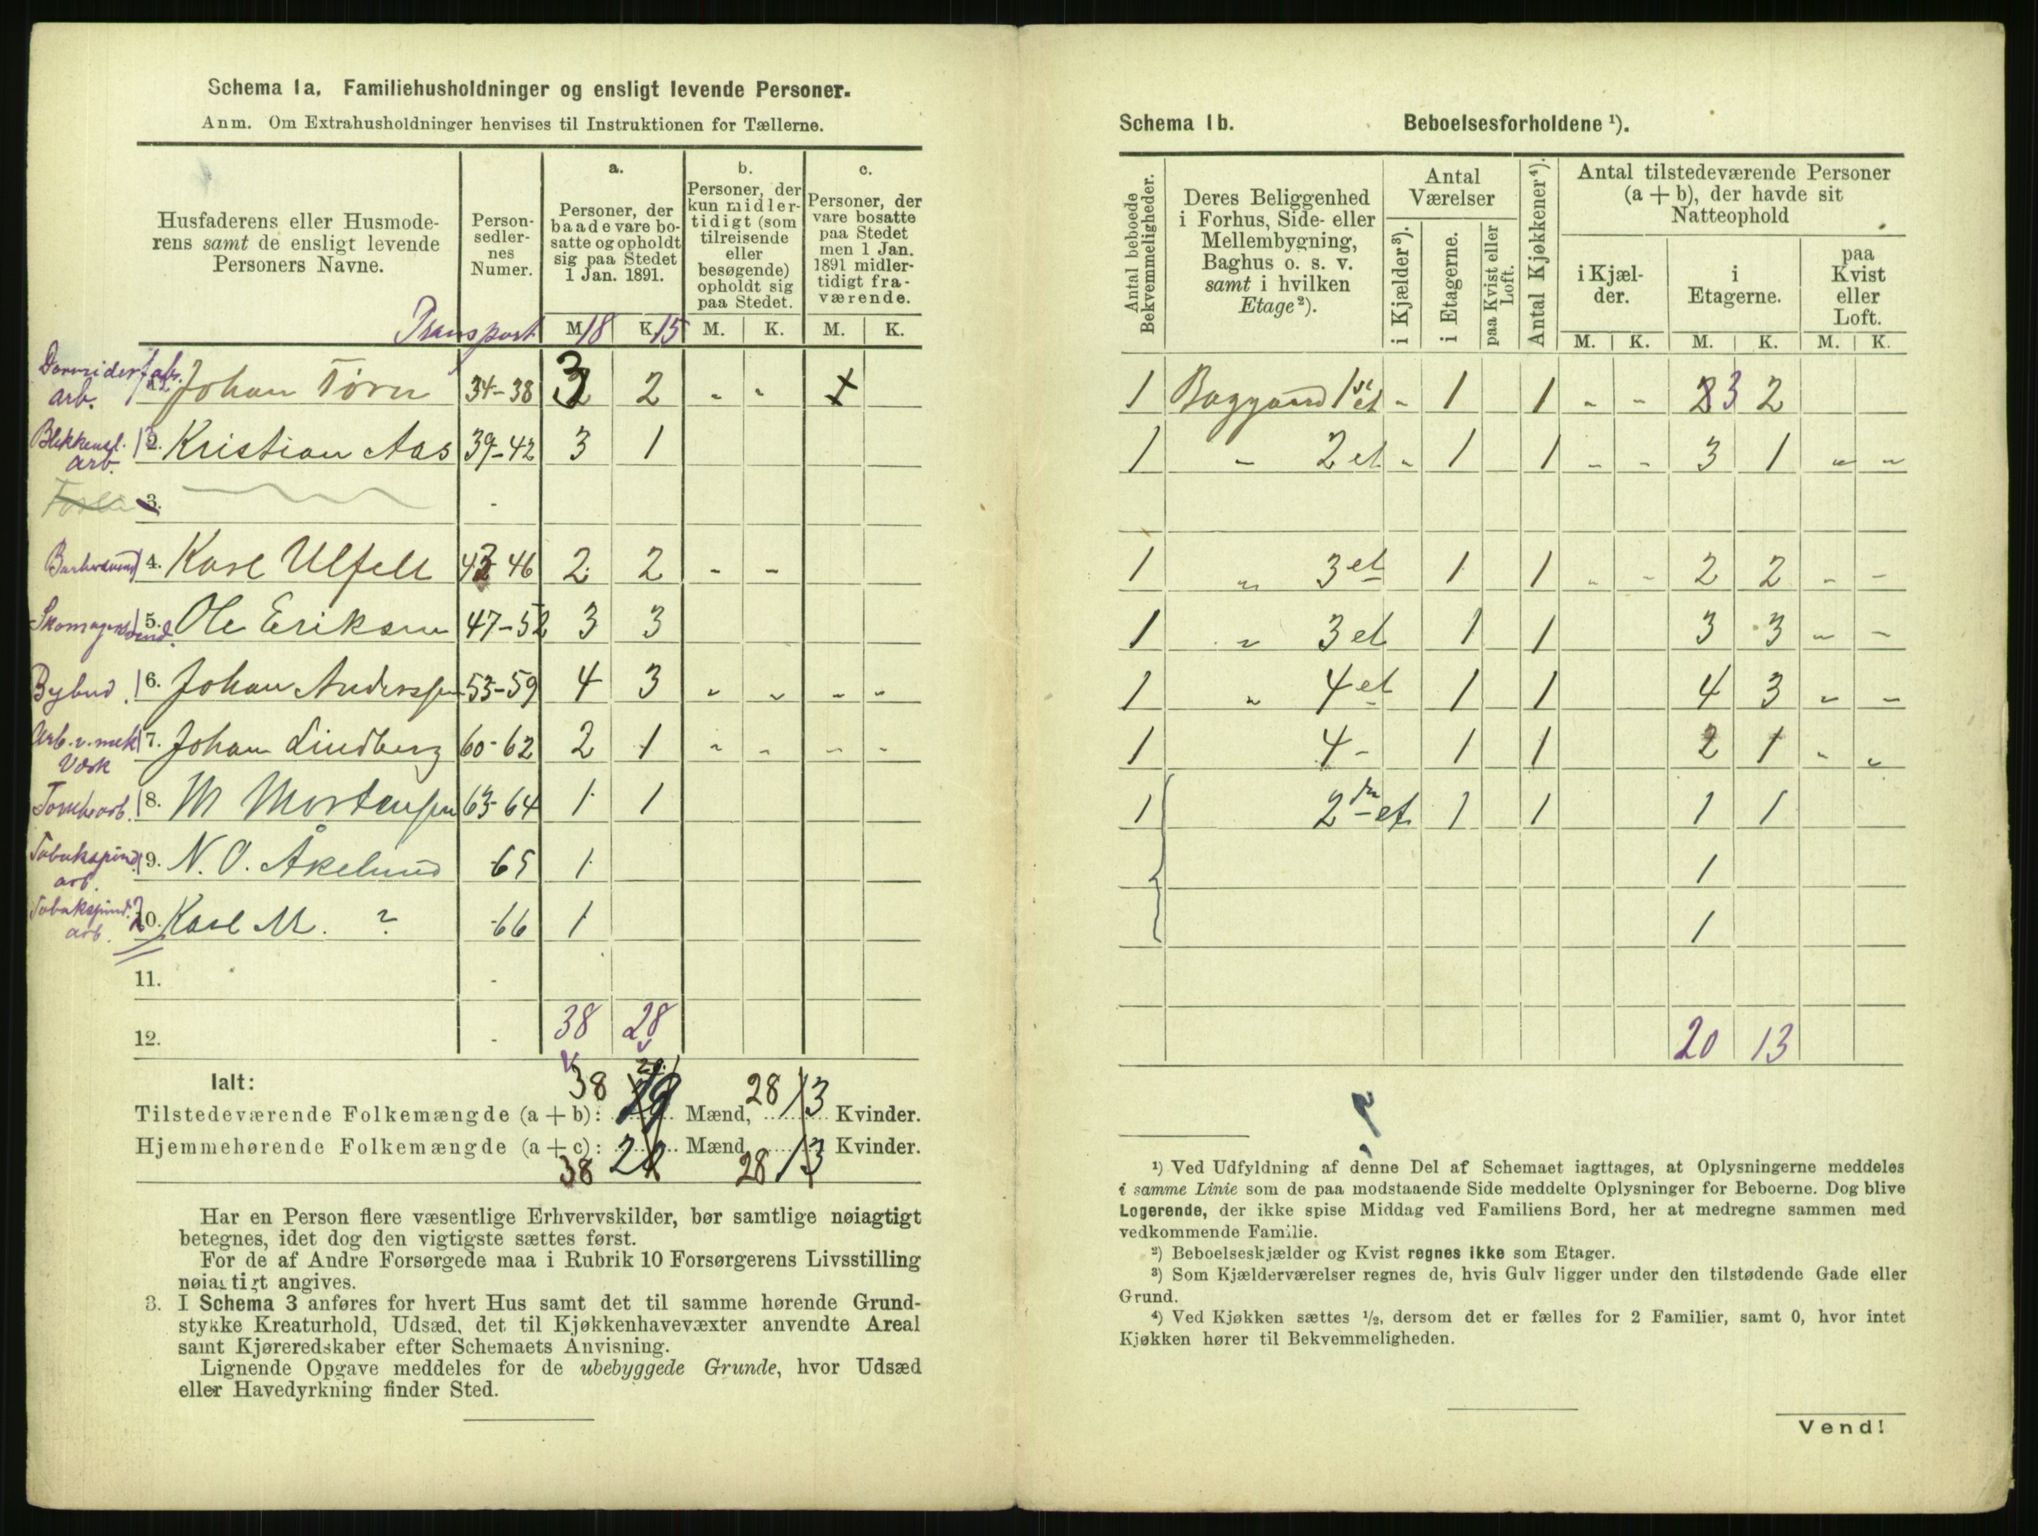 Schema 1a. Familiehusholdninger og ensligt levende Personer.
Anm. Om Extrahusholdninger henvises til Instruktionen for Tællerne.
Husfaderens eller Husmoderens samt de ensligt levende Personers Navne.
Personsedlernes Numer.
a. Personer, der baade vare bosatte og opholdt sig paa Stedet 1 Jan. 1891.
b. Personer, der kun midlertidigt (som tilreisende eller besøgende) opholdt sig paa Stedet.
c. Personer, der vare bosatte paa Stedet men 1 Jan. 1891 midlertidigt fraværende.
Transport M. 18 K. 15 M. K. M. K.
arb. Johan Törn 34-38 3 2 - - x
Blikkensl. arb. 2. Kristian Aas 39-42 3 1
3. -
4. Karl Ulfelt 43-46 2 2 - -
5. Ole Eriksen 47-52 3 3
Bybud. 6. Johan Anderssen 53-59 4 3 - - - -
Arb. v. mek Værk 7. Johan Lindberg 60-62 2 1 - - - -
8. M Mortensen 63-64 1 1
Tobakspind. arb. 9. N. O. Åkelund 65 1
Tobakspind. arb. 10. Karl M. ? 66 1
11. -
12. - 38 28
Ialt:
Tilstedeværende Folkemængde (a + b): 38 19 Mænd, 28 13 Kvinder.
Hjemmehørende Folkemængde (a + c): 38 Mænd 28 13 Kvinder.
Har en Person flere væsentlige Erhvervskilder, bør samtlige nøiagtigt
betegnes, idet dog den vigtigste sættes først.
For de af Andre Forsørgede maa i Rubrik 10 Forsørgerens Livsstilling
nøiagtigt angives.
3. I Schema 3 anføres for hvert Hus samt det til samme hørende Grund-
stykke Kreaturhold, Udsæd, det til Kjøkkenhavevæxter anvendte Areal
samt Kjøreredskaber efter Schemaets Anvisning.
Lignende Opgave meddeles for de ubebyggede Grunde, hvor Udsæd
eller Havedyrkning finder Sted.
Schema 1b. Beboelsesforholdene ¹).
Antal beboede Bekvemmeligheder.
Deres Beliggenhed i Forhus, Side- eller Mellembygning, Baghus o. s. v. samt i hvilken Etage²).
Antal Værelser
i Kjælder³).
i Etagerne.
paa Kvist eller Loft.
Antal Kjøkkener⁴).
Antal tilstedeværende Personer (a + b), der havde sit Natteophold
i Kjælder.
i Etagerne.
paa Kvist eller Loft.
M. K. M. K. M. K.
1 1 et - 1 1 - - 3 2
1 - 2 et - 1 1 - - 3 1 - -
1 " 3 et 1 1 - - 2 2 - -
1 " 3 et 1 1 3 3 - -
1 " 4 et 1 1 4 3 - -
1 4 - 1 1 2 1 - -
1 2 et 1 1 1 1
1
1
20 13
¹) Ved Udfyldning af denne Del af Schemaet iagttages, at Oplysningerne meddeles
i samme Linie som de paa modstaaende Side meddelte Oplysninger for Beboerne. Dog blive
Logerende, der ikke spise Middag ved Familiens Bord, her at medregne sammen med
vedkommende Familie.
²) Beboelseskjælder og Kvist regnes ikke som Etager.
³) Som Kjælderværelser regnes de, hvis Gulv ligger under den tilstødende Gade eller
Grund.
⁴) Ved Kjøkken sættes ½, dersom det er fælles for 2 Familier, samt 0, hvor intet
Kjøkken hører til Bekvemmeligheden.
Vend!